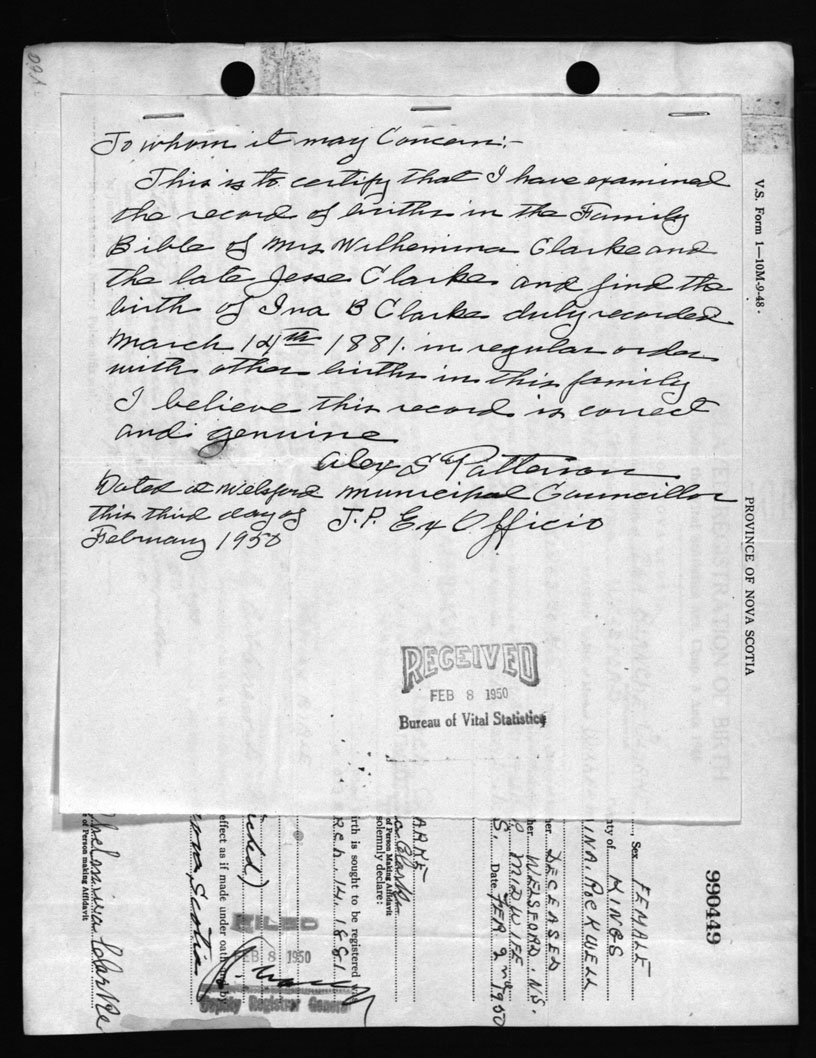 To whom it may Concern:-
This is to certify that I have examined
the record of births in the Family
Bible of Mrs Wilhemina Clarke and
the late Jesse Clarke and find the
birth of Ina B Clarke duly recorded
March 14th 1881. in regular order
with other births in this family
I believe this record is correct
and genuine
Alex S Patterson
Dated at Welsford Municipal Councillor
this third day of J.P. Ex Officio
February 1950
RECEIVED
FEB 8 1950
Bureau of Vital Statistics
V.S. Form 1—10M-9-48.
PROVINCE OF NOVA SCOTIA
990449
Sex FEMALE
ty of KINGS
INA. ROCKWELL
her. DECEASED
her. WELSFORD. N.S.
MIDWIFE
S. Date FEB 2nd 1950
ARKE
Clarke
of Person Making Affidavit
solemnly declare:
irth is sought to be registered
RCH. 14. 1881
ched)
effect as if made under oath
ova Scotia
FILED
FEB 8 1950
Deputy Registrar General
helmina Clarke
of Person making Affidavit